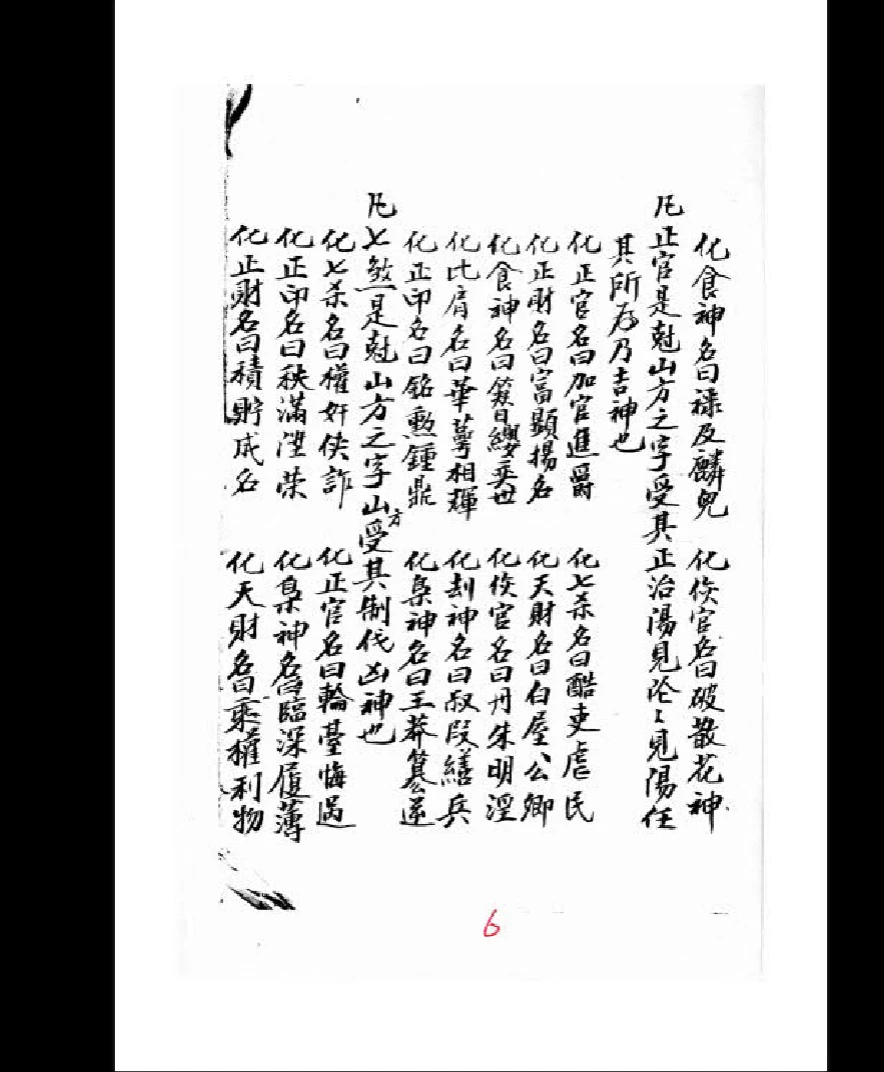 化食神名曰祿及麟兒　化傷官名曰破散花神
凡正官是尅山方之字受其正治陽見陰〻見陽任
其所為乃吉神也
化正官名曰加官進爵　化七杀名曰酷吏虐民
化正財名曰富顯揚名　化天財名曰白屋公卿
化食神名曰簪纓奕世　化傷官名曰丹朱明淫
化比肩名曰華萼相輝　化刦神名曰叔段繕兵
化正印名曰銘勲鍾鼎　化梟神名曰王莽篡逆
凡七煞是尅山方之字山方受其制伐凶神也
化七杀名曰權奸侠詐　化正官名曰輪臺悔過
化正印名曰秩滿陞荣　化梟神名曰臨深履薄
化正財名曰積貯成名　化天財名曰乘權利物
6